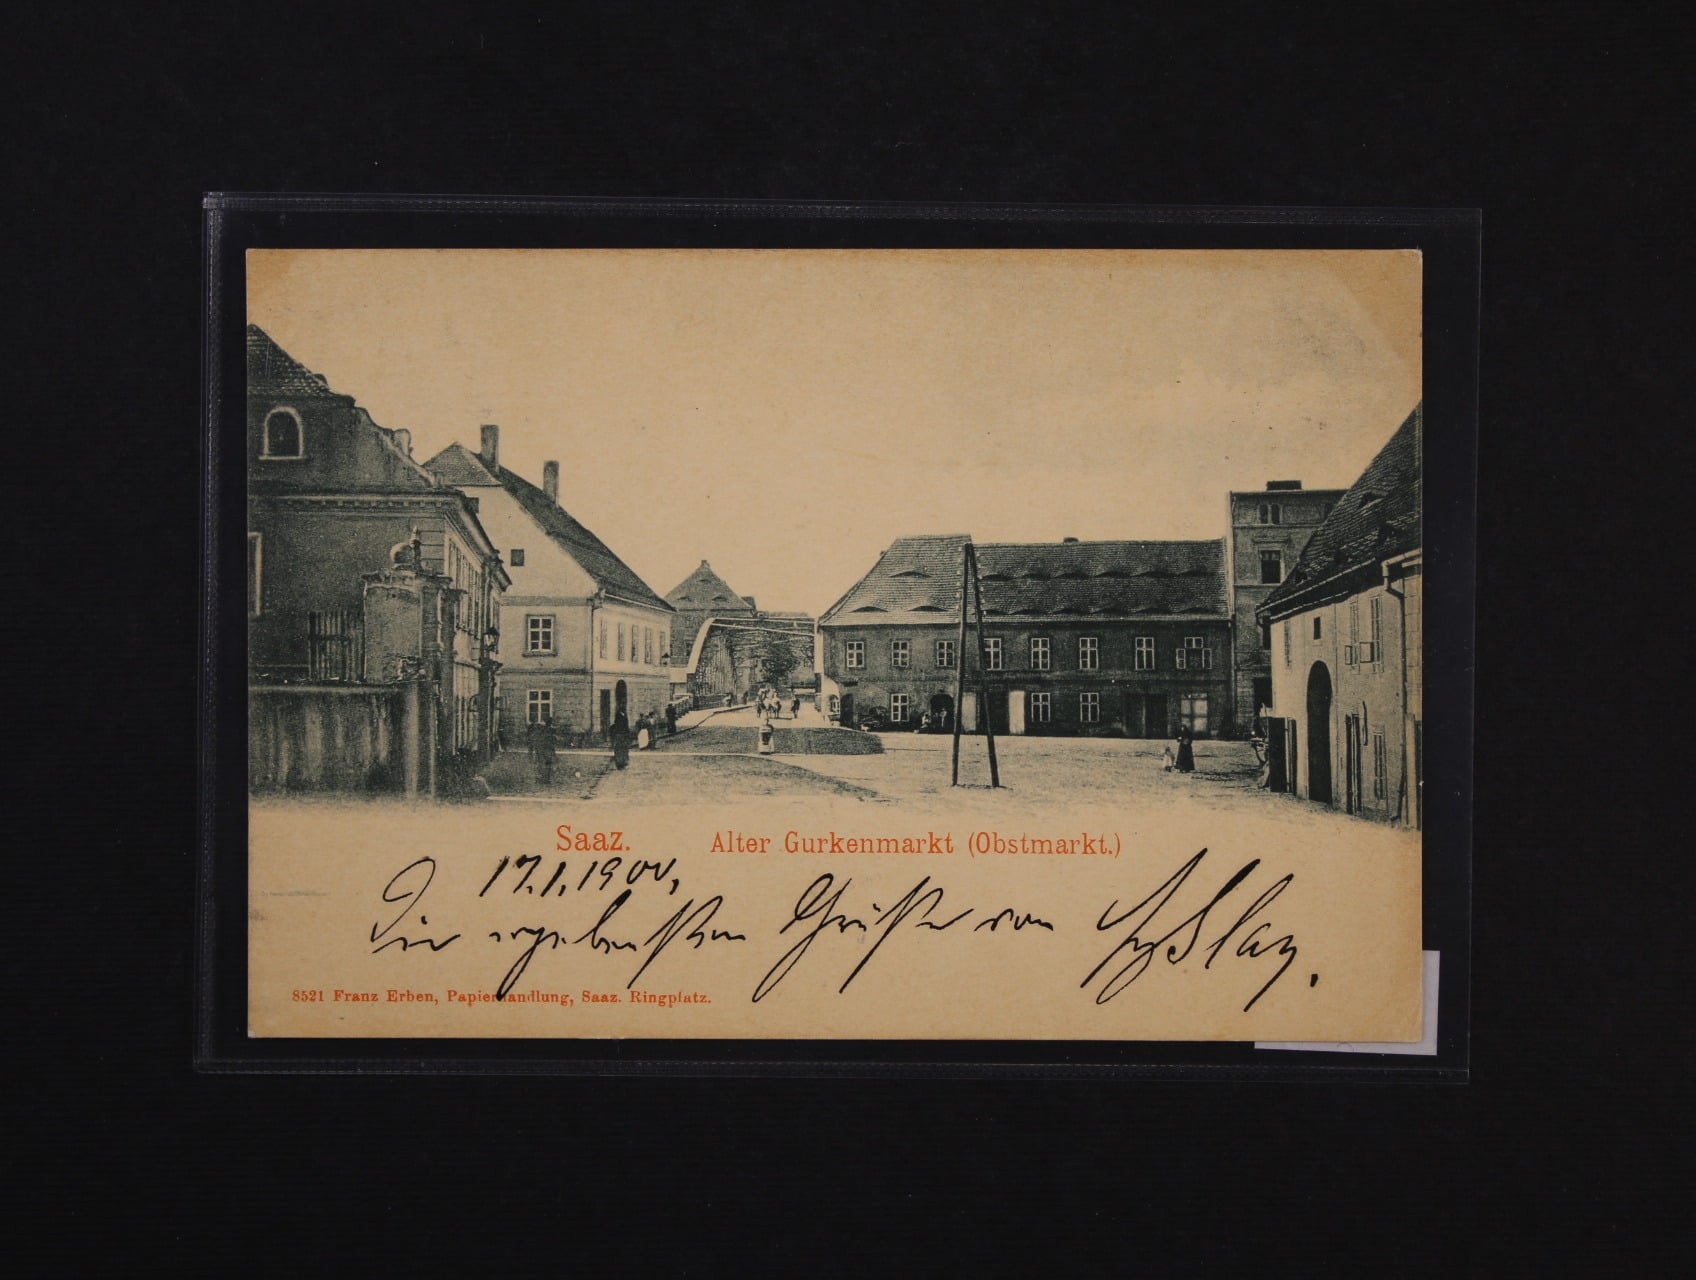 Saaz. Alter Gurkenmarkt (Obstmarkt.)
17.1.1900.
Die ergebensten Grüße von
8521 Franz Erben, Papierhandlung, Saaz. Ringplatz.